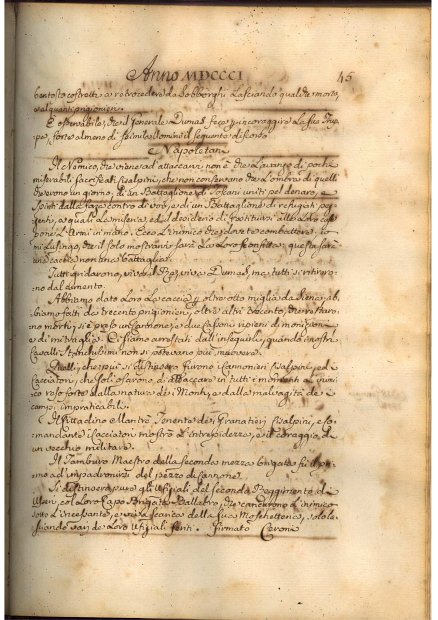 Anno MDCCCI
45
costretti a retrocedere da Lasciando qualche morto,
e alquanti prigionieri.
È osservabile, che il Generale Dumas, fece, per incoraggire la sua Trup
pa, forte almeno di mila Uomini il seguente discorso
Napoletani
Il Nemico, che viene ad attaccarvi non è che l'avanzo di pochi
miserabili Cisalpini, che non conservano che l'ombra di quelli
che erono un giorno, di un Battaglione di Toscani uniti pel denaro, e
spinti dalla contro di voi, e di un Battaglione di refugiati
ai quali la miseria, ed il desiderio di restituirsi alle Loro
pone l'Armi in mano. Ecco l'inimico che dovete combattere. Io
mi Lusingo, che il solo mostrarvi farà la Loro sconfitta, questa sarà
una non una battaglia.
Tutti gridarono, viva il Re, viva Dumas, ma tutti si ritiraro
no dal cimento.
Abbiamo dato Loro la caccia oltre otto miglia da Siena, ab
biamo fatti trecento prigionieri, oltre altri trecento, che restaro
no morti, si è preso un Cannone, e due Cassoni ripieni di monizione
e di mitraglia. Ci siamo arrestati dall'inseguirli, quando i nostri
Cavalli non si potevano più muovere.
Quelli, che più si distinsero furono i Cannonieri Cisalpini, ed i
Cacciatori, che soli osarono, di attaccare in tutti i momenti l'inimi
co reso forte dalla natura dei Monti, e dalla malvagità dei
campi impraticabili.
Il Cittadino Tenente dei Granatieri Cisalpini, e Co
mandante i Cacciatori mostrò l'intrepidezza, e il coraggio, di
un vecchio militare.
Il Tamburo Maestro della seconda mezza brigata fu il pri
mo ad impadronirsi del pezzo di Cannone.
Si distinsero, pure gli Ufiziali del secondo Reggimento di
col Loro Capo Brigata che caricarono l'inimico
sotto l'incessante, e viva scarica della sua Moschetteria, vole
dei Loro Ufiziali feriti. Firmato